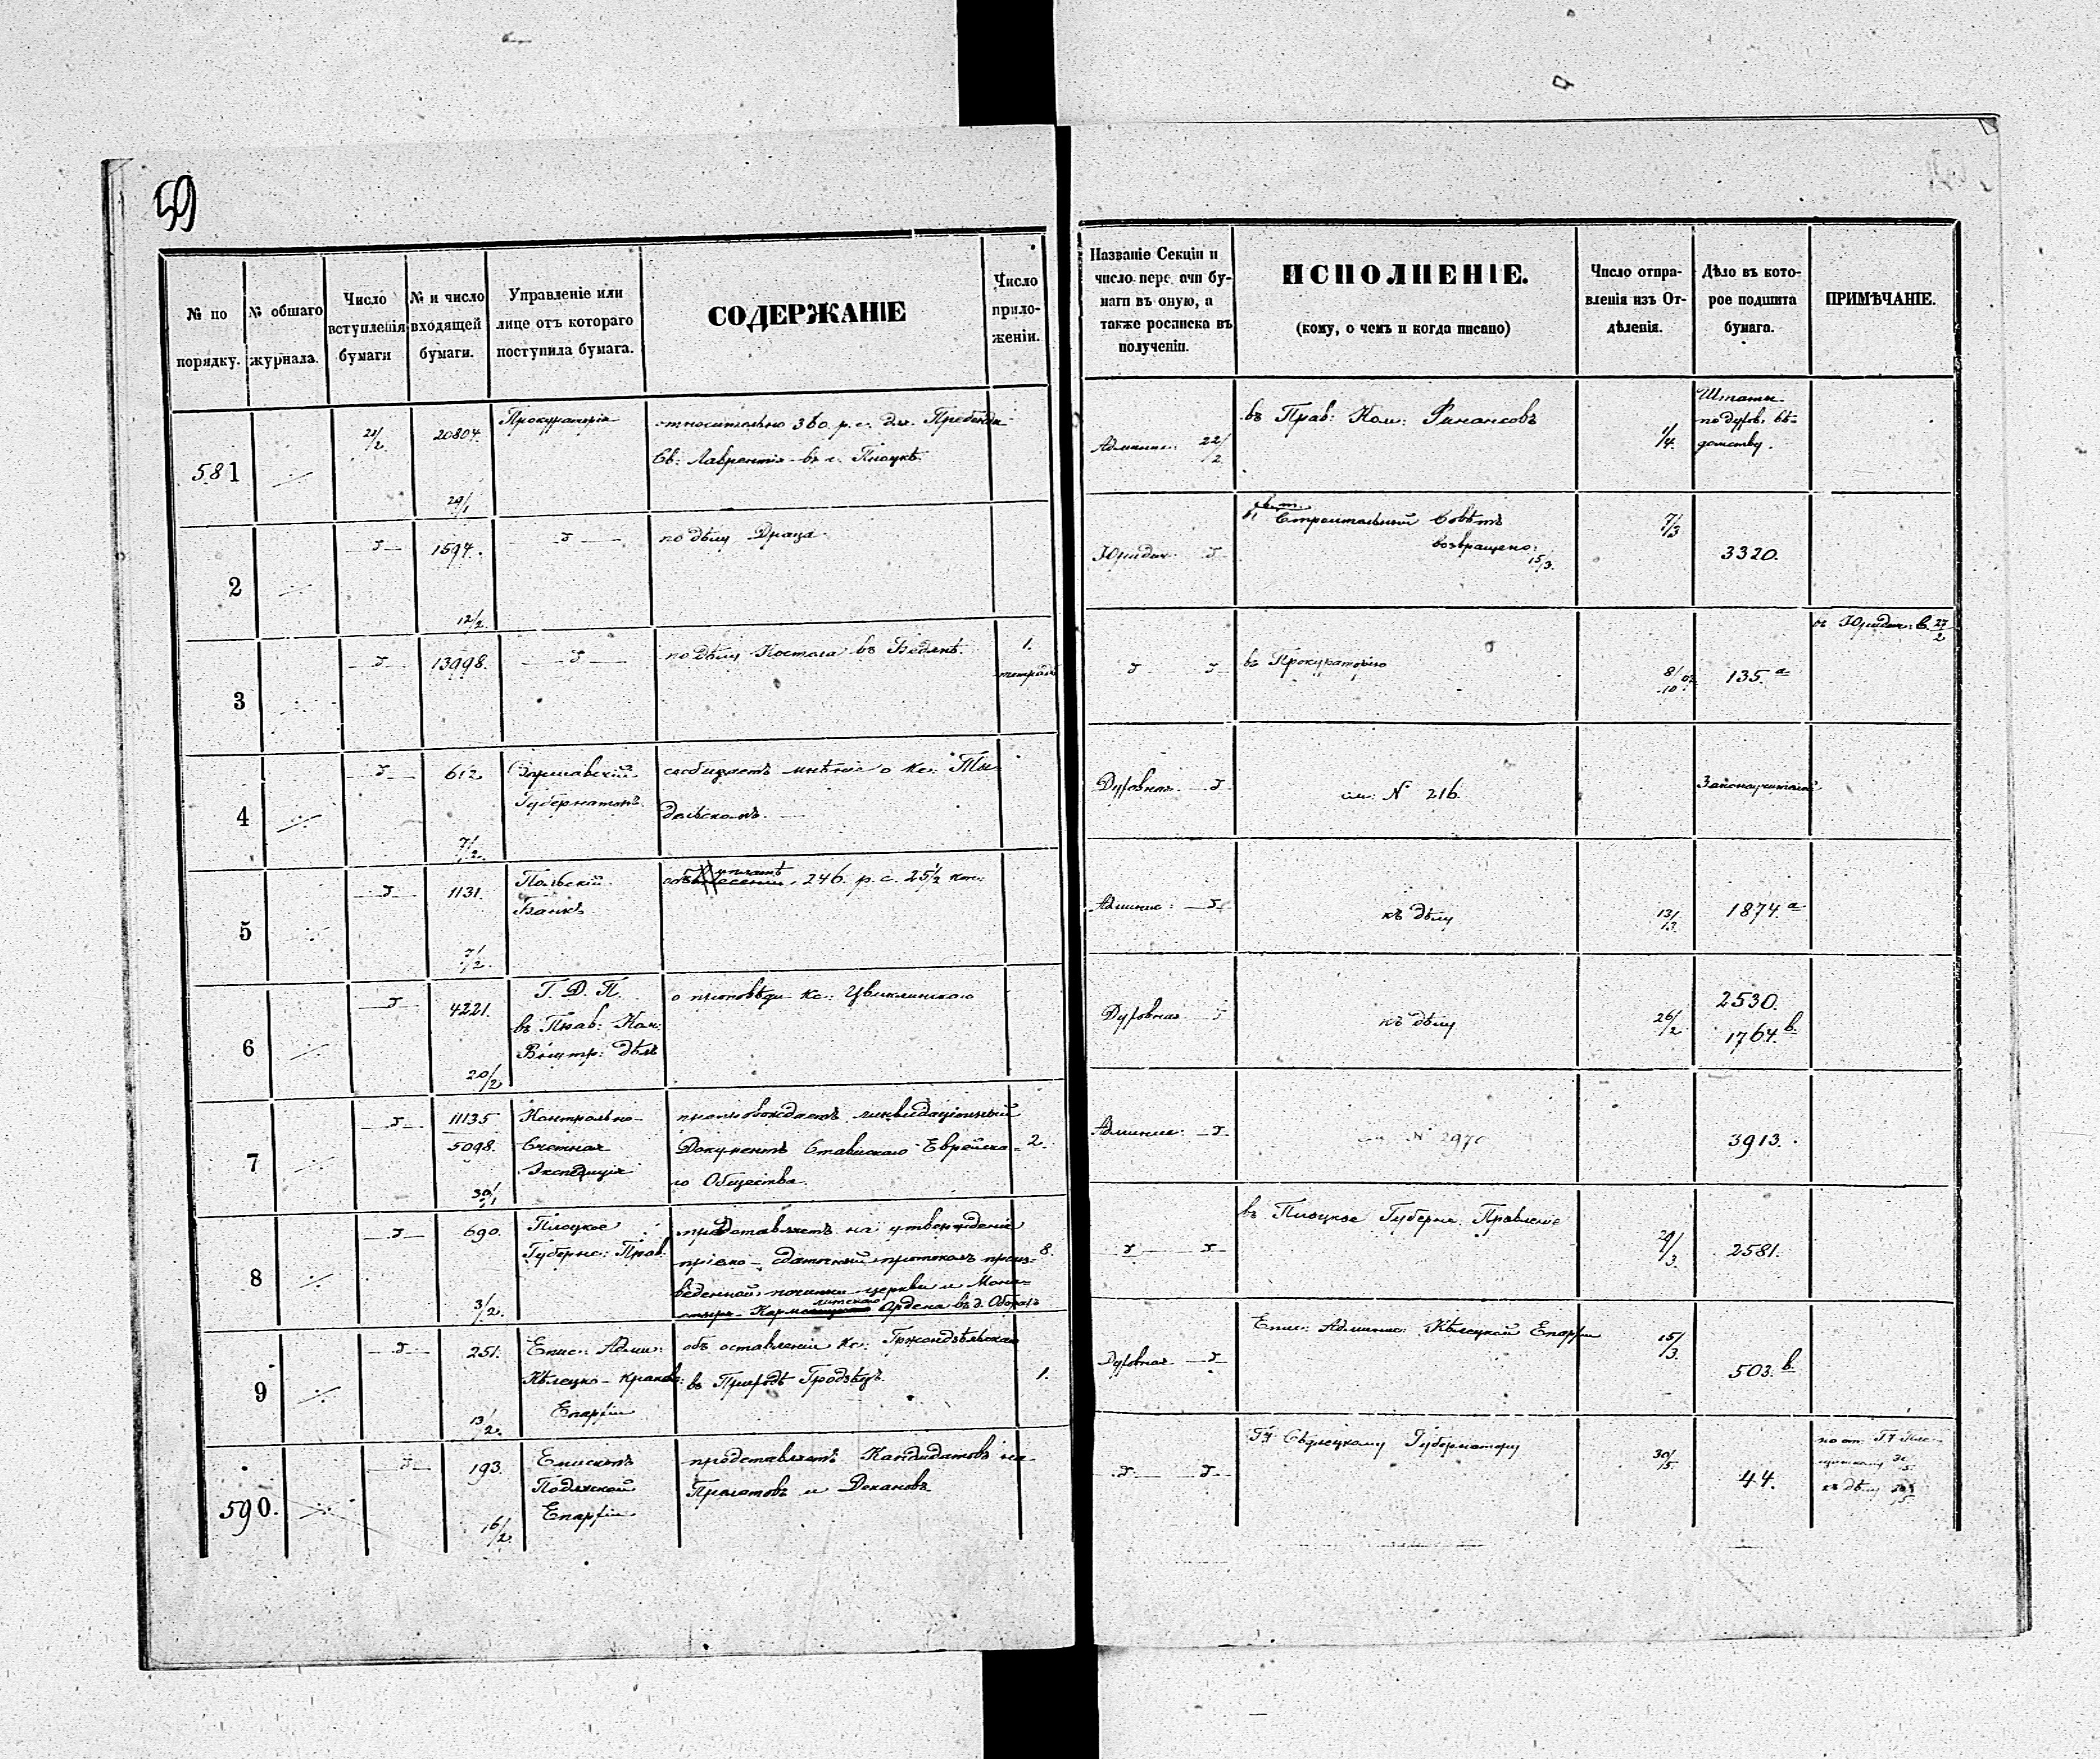 59
№ по порядку.
№ общаго журнала.
Число вступленія бумаги
№ и число входящей бумаги.
Управленіе или лице отъ котораго поступила бумага.
СОДЕРЖАНІЕ
Число прило-женіи.
Названіе Секціи и
число пере ачи бу-
маги въ оную, а
также росписка въ
полученіи.
ИСПОЛНЕНІЕ.
(кому, о чемъ и когда писано)
Число отпра-
вленія изъ От-
дѣленія.
Дѣло въ кото-
рое подшита
бумага.
ПРИМѢЧАНІЕ.
581
21/2
20804.
29/1
Прокураторія
относительно 360 р. с. для Пребенды
Св: Лаврентія въ г. Плоцкѣ
Админис: 22/2
въ Прав: Ком: Финансовъ
1/4.
Штаты
по духов: вѣ=
домству.
2
1594.
12/2.
по дѣлу Драца
Юридич:
Строительный Совѣтъ
возвращено:
15/3.
7/3
3320.
3
13998.
по дѣлу Костела въ Бедлнѣ.
1.
тетрадь
въ Прокураторію
8/10
135.a
въ Юридич: С. 27/2
4
612
7/2.
Варшавскій
Губернаторъ
сообщаетъ мнѣніе о Кс:
Духовная
см: № 216.
Законоучителей
5
1131.
7/2.
Польскій
Банкъ
уплатѣ 246. р. с. 25½ коп:
Админис:
къ дѣлу
13/3.
1874.a
6
4221.
20/2
Г. Д. П.
въ Прав: Ком:
Внутр: дѣлъ
о проповѣди Кс: Цвиклинскаго
Духовная
къ дѣлу
26/2
2530.
1764.b.
7
11135
5098.
30/1
Контрольно-
Счетная
Экспедиція
препровождаетъ ликвидаціонный
Документъ Ставискаго Еврейска=
го Общества.
2.
Админис:
см: № 2970
3913.
8
690.
3/2.
Плоцкое
Губернс: Прав:
представляетъ на утвержденіе
пріемо-сдаточный протоколъ произ=
веденной починки церкви и Мона=
стыря Кармелитскаго Ордена въ д. Оборахъ
8.
въ Плоцкое Губернс: Правленіе
29/3.
2581.
9
251.
13/2.
Епис: Адми:
Кѣлецко-Краков:
Епархіи
объ оставленіи Кс: Гржондзѣльскаго
въ Приходѣ Гродзѣцъ.
1.
Духовная
Епис: Админис: Кѣлецкой Епархіи
15/3.
503.b.
590.
193.
16/2.
Епископъ
Подляской
Епархіи
представляетъ Кандидатовъ на
Прелатовъ и Декановъ
Сѣдлецкому Губернатору
30/5.
44.
къ дѣлу